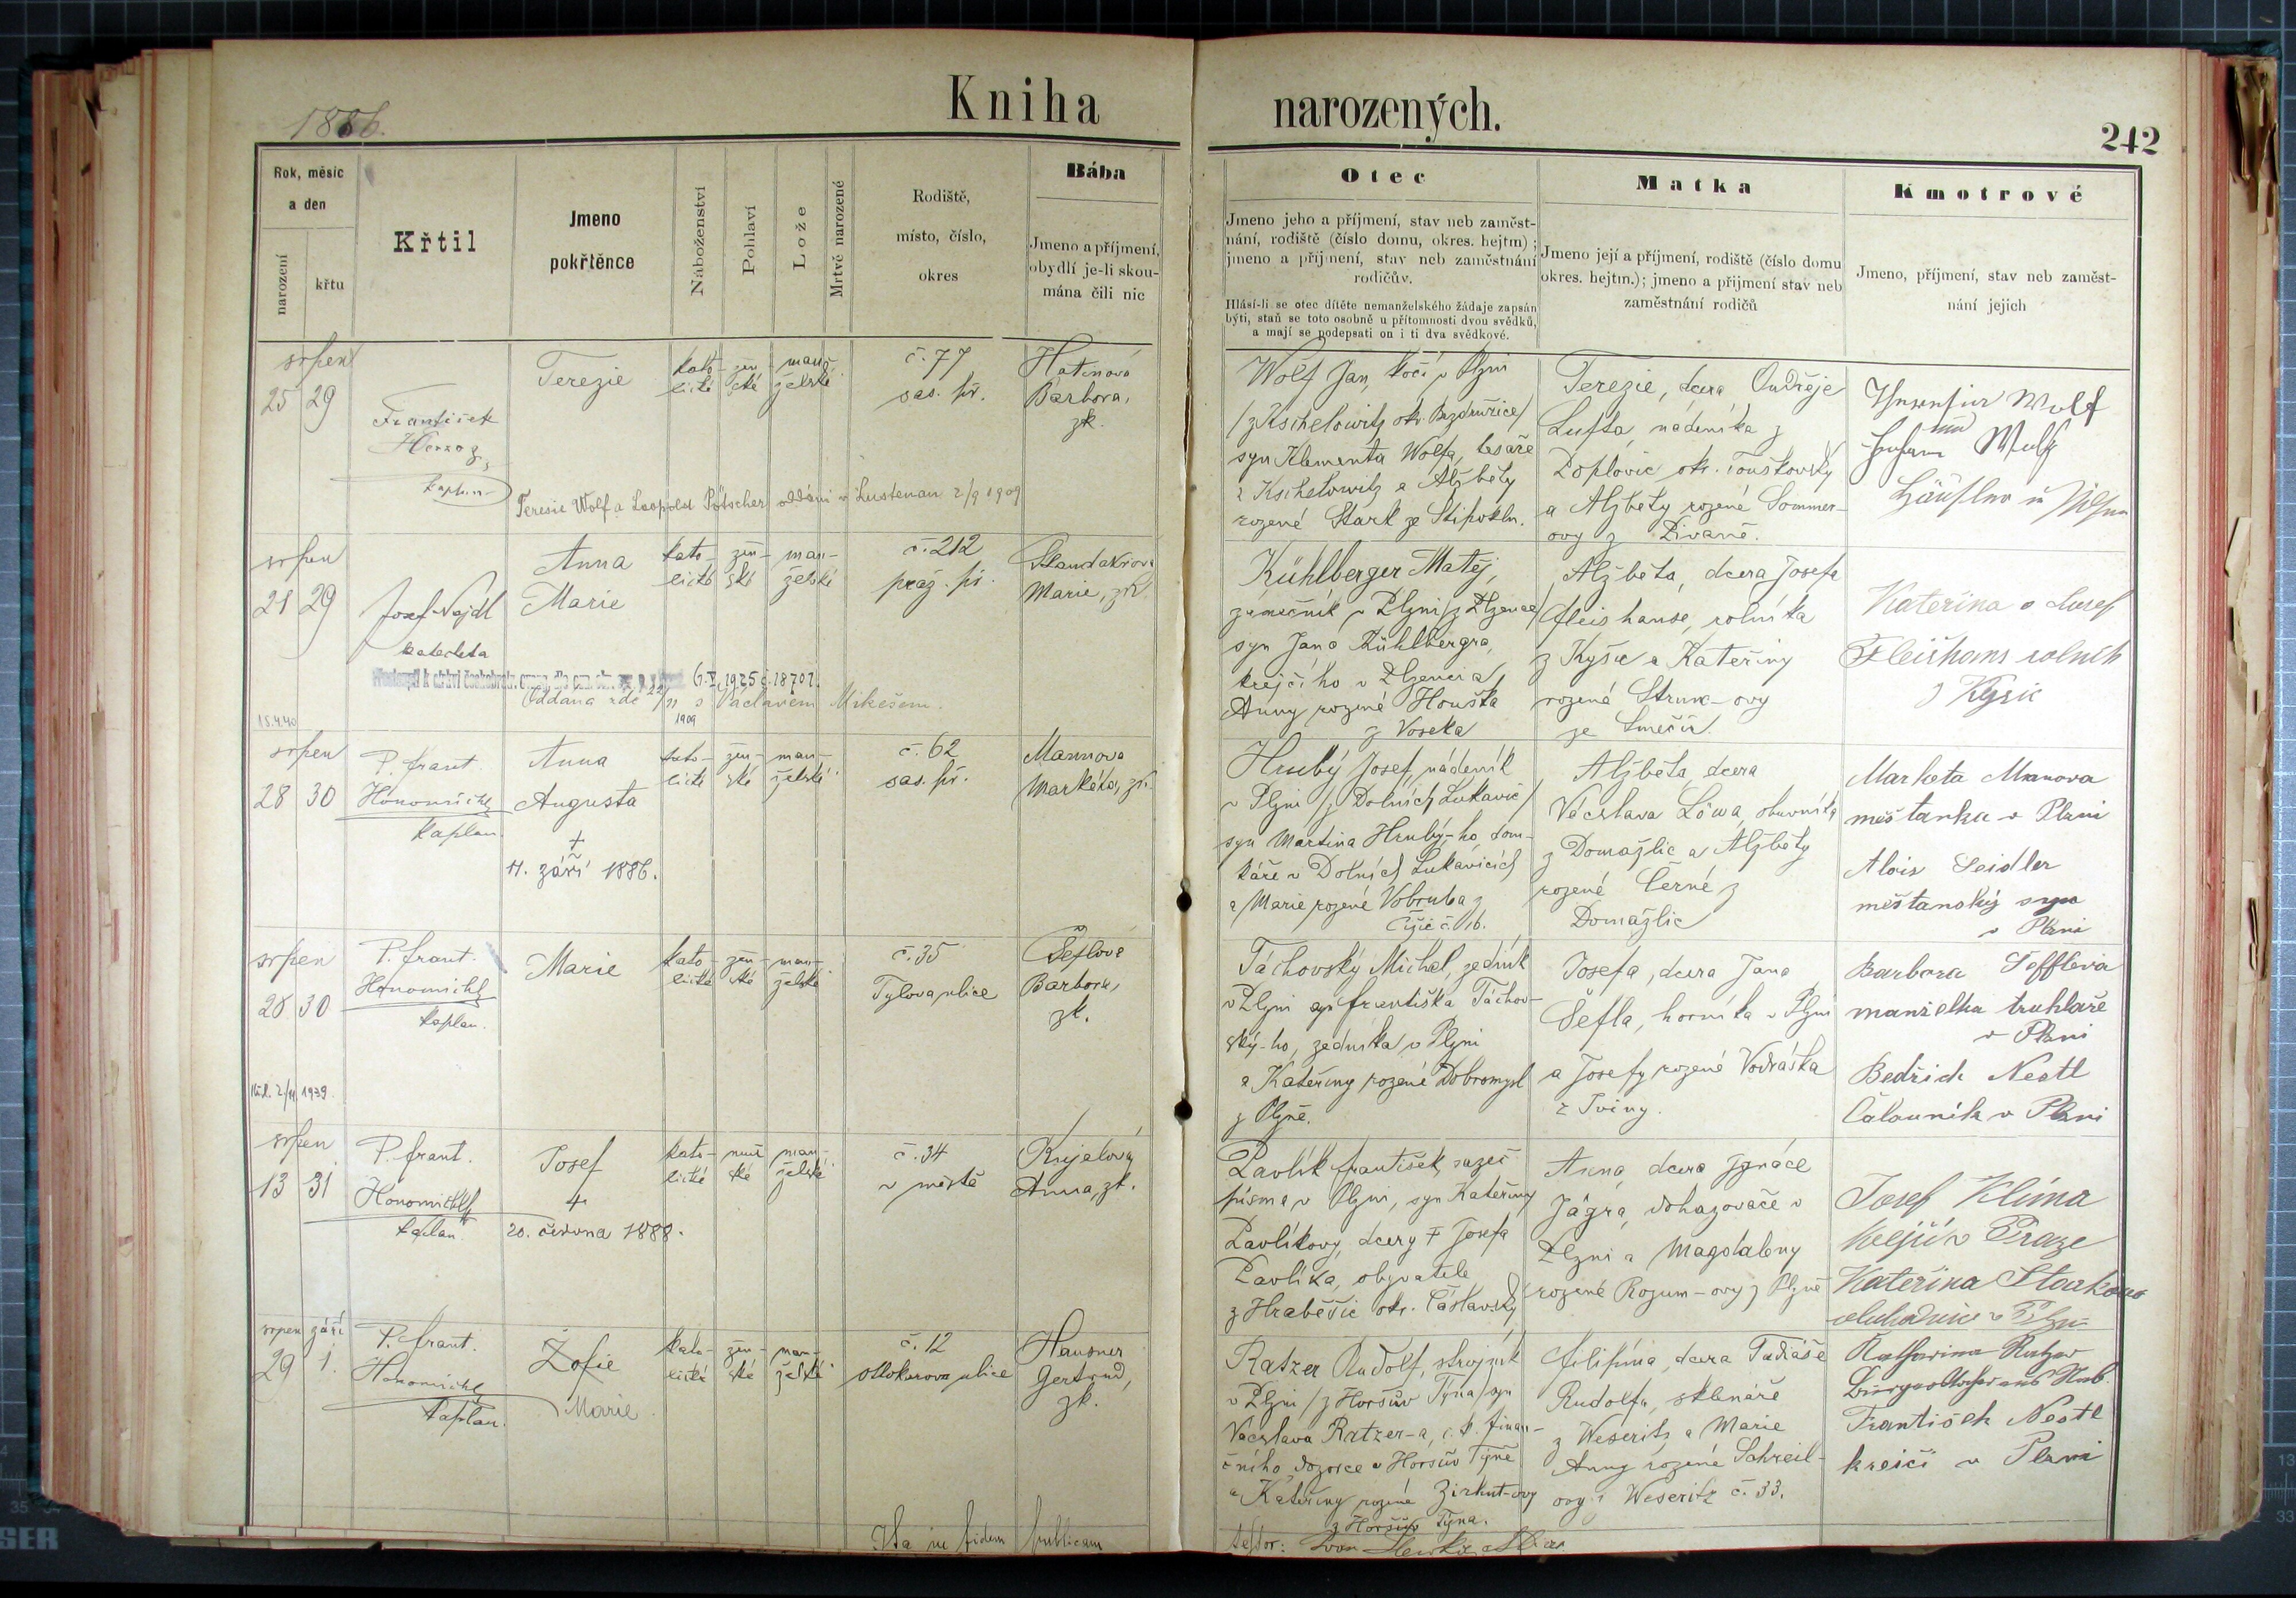 Kniha narozených.
1886.
242
Rok, měsíc
a den
narození
křtu
Křtil
Jmeno
pokřtěnce
Náboženství
Pohlaví
Lože
Mrtvě narozené
Rodiště,
místo, číslo,
okres
Bába
Jmeno a příjmení,
obydlí je-li skou-
mána čili nic
Otec
Jmeno jeho a příjmení, stav neb zaměst-
nání, rodiště (číslo domu, okres. hejtm) ;
jmeno a příjmení, stav neb zaměstnání
rodičův.
Hlásí-li se otec dítěte nemanželského žádaje zapsán
býti, staň se toto osobně u přítomnosti dvou svědků,
a mají se podepsati on i ti dva svědkové.
Matka
Jmeno její a příjmení, rodiště (číslo domu
okres. hejtm.); jmeno a příjmení stav neb
zaměstnání rodičů
Kmotrové
Jmeno, příjmení, stav neb zaměst-
nání jejich
srpen
25 29
František
Herzog,
kaplan
Terezie
kato-
lické
žen-
ské
man-
želské
č. 77
sas. př.
Hatinová
Barbora,
zk.
Terezie Wolf a Leopold Pötscher oddáni v Lustenau 2/9 1909
Wolf Jan, kočí v Plzni
syn Klementa Wolfa, tesaře
a Alžběty
rozené Stark ze
Terezie, dcera Ondřeje
Lufta, nádeníka z
okr. Touškovský
a Alžběty rozené Sommer-
ovy z
Wolf
srpen
21 29
Josef Nejdl
katecheta
Anna
Marie
kato-
lické
žen-
ské
man-
želské
č. 212
praž. př.
Marie, zk.
6. V. 1925 č. 18701.
Oddána zde 22/11 1909 s Václavem Mikešem.
15.4.40
Kühlberger Matěj,
zámečník v Plzni
syn Jana Kühlbergra,
krejčího v
Anny rozené Houška
z Voseka
Alžběta, dcera Josefa
Fleishanse, rolníka
z Kyšic a Kateřiny
rozené Strunc-ovy
ze Smečic.
Kateřina a Josef
Fleišhans rolník
z Kyšic
srpen
28 30
P. Frant.
Honomichl
kaplan.
Anna
Augusta
+
11. září 1886.
kato-
lické
žen-
ské
man-
želské
č. 62
sas. př.
Mannova
Markéta, zk.
Hrubý Josef, nádeník
v Plzni (z Dolních Lukavic)
syn Martina Hrubý-ho, dom-
káře v Dolních Lukavicích
a Marie rozené Vobruba z
Čižic č. 16.
Alžběta, dcera
Václava Löwa, obuvníka
z Domažlic a Alžběty
rozené Černé z
Domažlic
Marketa Manova
měštanka v Plzni
Alois Seidler
měštanský syn
v Plzni
srpen
28 30
P. Frant.
Honomichl
kaplan.
Marie
kato-
lické
žen-
ské
man-
želské
č. 35
Tylova ulice
Šeflová
Barbora,
zk.
2/11 1939
Táchovský Michal, zedník
v Plzni syn Františka Táchov-
ský-ho, zedníka v Plzni
a Kateřiny rozené Dobromysl
z Plzně.
Josefa, dcera Jana
Šefla, horníka v Plzni
a Josefy rozené Vodráška
Barbora Šefflová
manželka truhláře
v Plzni
Bedřich Nestl
Čalouník v Plzni
srpen
13 31
P. Frant.
Honomichl
kaplan.
Josef
+
20. června 1888.
kato-
lické
muž-
ské
man-
želské
č. 34
v městě
Anna, zk.
Pavlík František, sazeč
písma v Plzni, syn Kateřiny
Pavlíkovy, dcery † Josefa
Pavlíka, obyvatele
z Hraběšic okr. Čáslavský
Anna, dcera Ignáce
Jágra, dohazovače v
Plzni a Magdaleny
rozené Rozum-ovy z Plzně
Josef Klíma
krejčí v Praze
Kateřina
obchodnice v Plzni
srpen září
29 1.
P. Frant.
Honomichl
kaplan.
Žofie
Marie
kato-
lické
žen-
ské
man-
želské
č. 12
Otokarova ulice
Hausner
Gertrud,
zk.
Ratzer Rudolf, strojník
v Plzni (z Horšův Týna) syn
Václava Ratzer-a, c. k. finan-
čního dozorce v Horšův Týně
a Kateřiny rozené Zirkut-ovy
z Horšův Týna.
Filipína, dcera Tadiáše
Rudolfa, sklenáře
z Weseritz a Marie
Anny rozené Schreil-
ovy z Weseritz č. 33.
Katharina Ratzer
František Nestl
krejčí v Plzni
Ita in fidem publicam
testor: